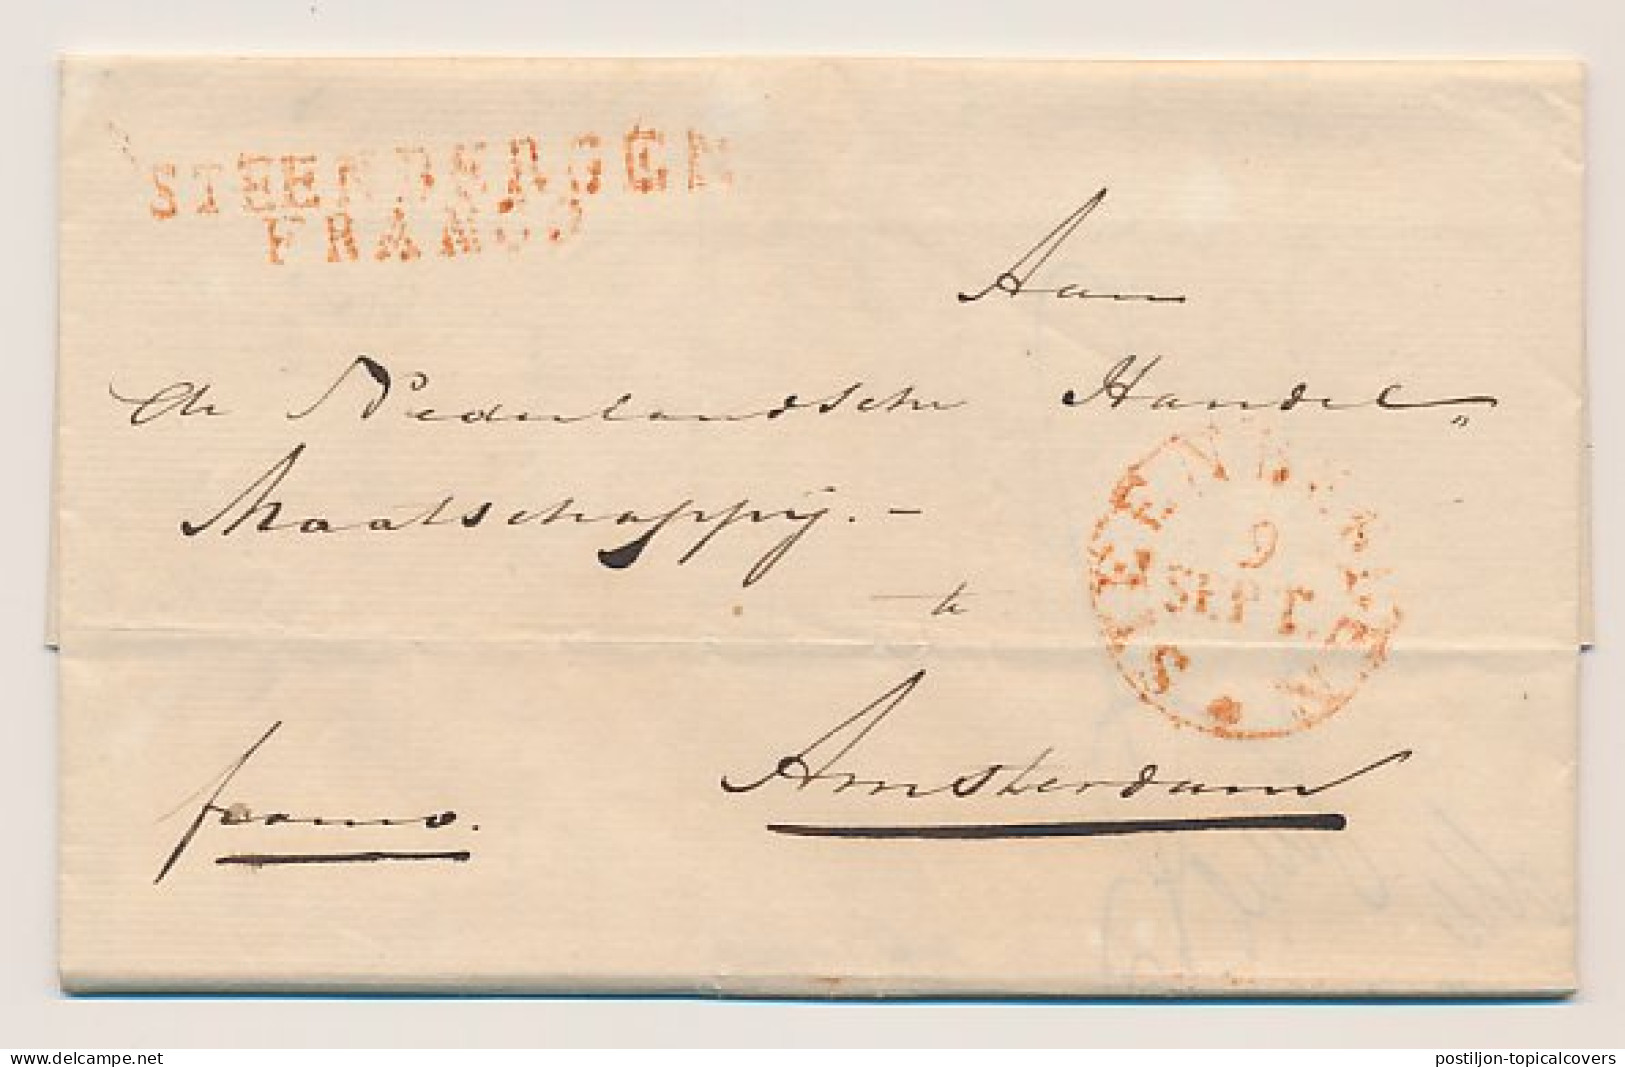 STEENBERGEN
FRANCO
Aan
de Nederlandsche Handel„
Maatschappij. –
te
STEENBERGEN
9
SEPT.
Amsterdam
franco.
www.delcampe.net
postiljon-topicalcovers